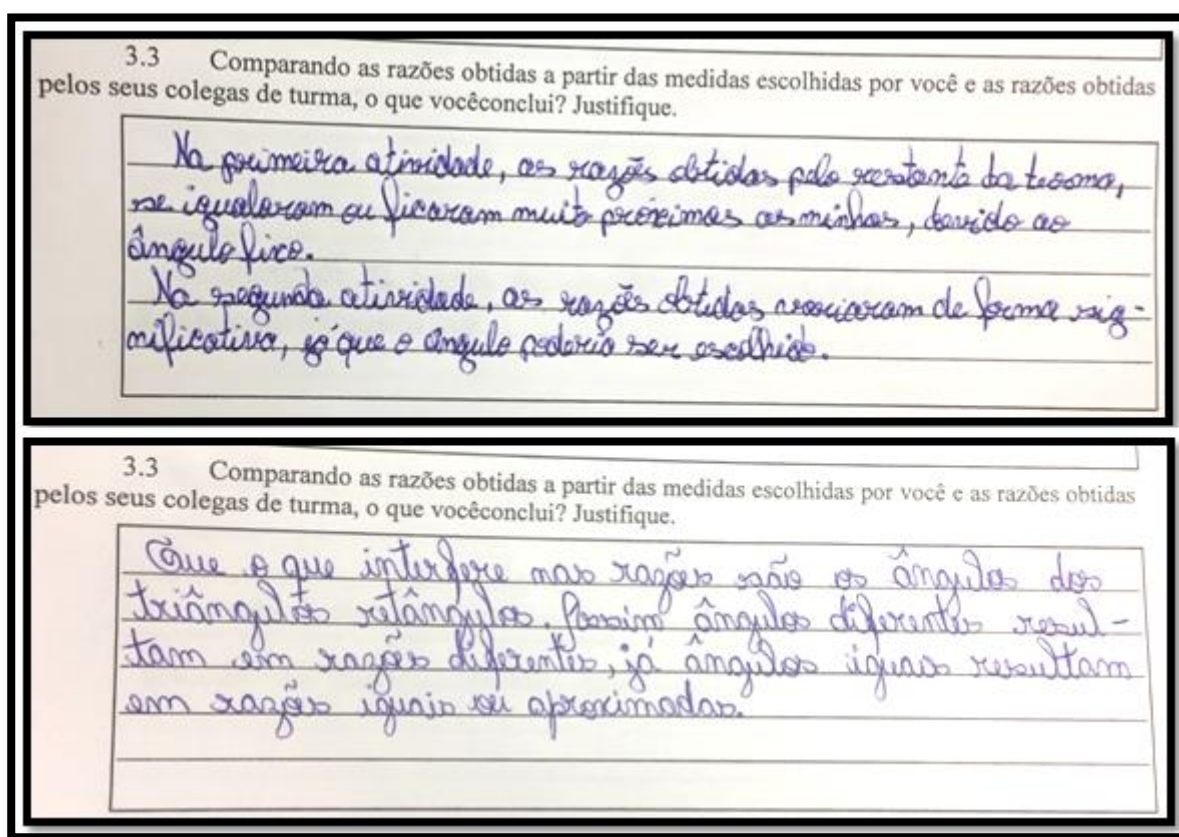 3.3 Comparando as razões obtidas a partir das medidas escolhidas por você e as razões obtidas
pelos seus colegas de turma, o que vocêconclui? Justifique.
Na primeira atividade, as razões obtidas pelo restante da turma,
se igualaram ou ficaram muito próximas as minhas, devido ao
ângulo fixo.
Na segunda atividade, as razões obtidas variaram de forma sig-
nificativa, já que o angulo poderia ser escolhido.
3.3 Comparando as razões obtidas a partir das medidas escolhidas por você e as razões obtidas
pelos seus colegas de turma, o que vocêconclui? Justifique.
Que o que interfere nas razões são os ângulos dos
triângulos retângulos. Assim ângulos diferentes resul-
tam em razões diferentes, já ângulos iguais resultam
em razões iguais ou aproximadas.